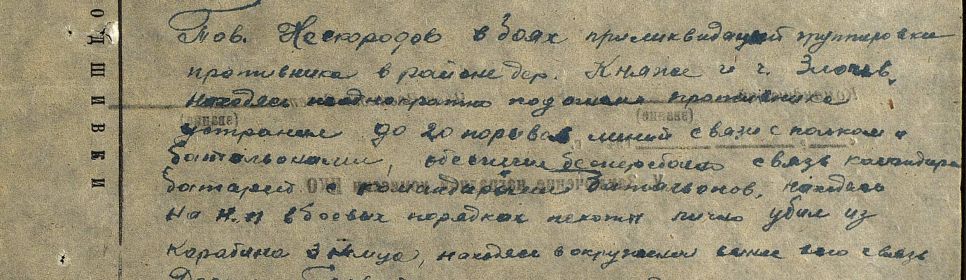 Тов. Нескородов в боях при ликвидации группировки
противника в районе дер. Княже и г. Злочев,
находясь неоднократно под огнем противника
устранил до 20 порывов линий связи с полком и
батальонами, обеспечил бесперебойн связь командира
батареи с командирами батальонов, находясь
на Н.П в боевых порядках пехоты лично убил из
карабина 3 немца, находясь в окружении
ПОДШИВКИ